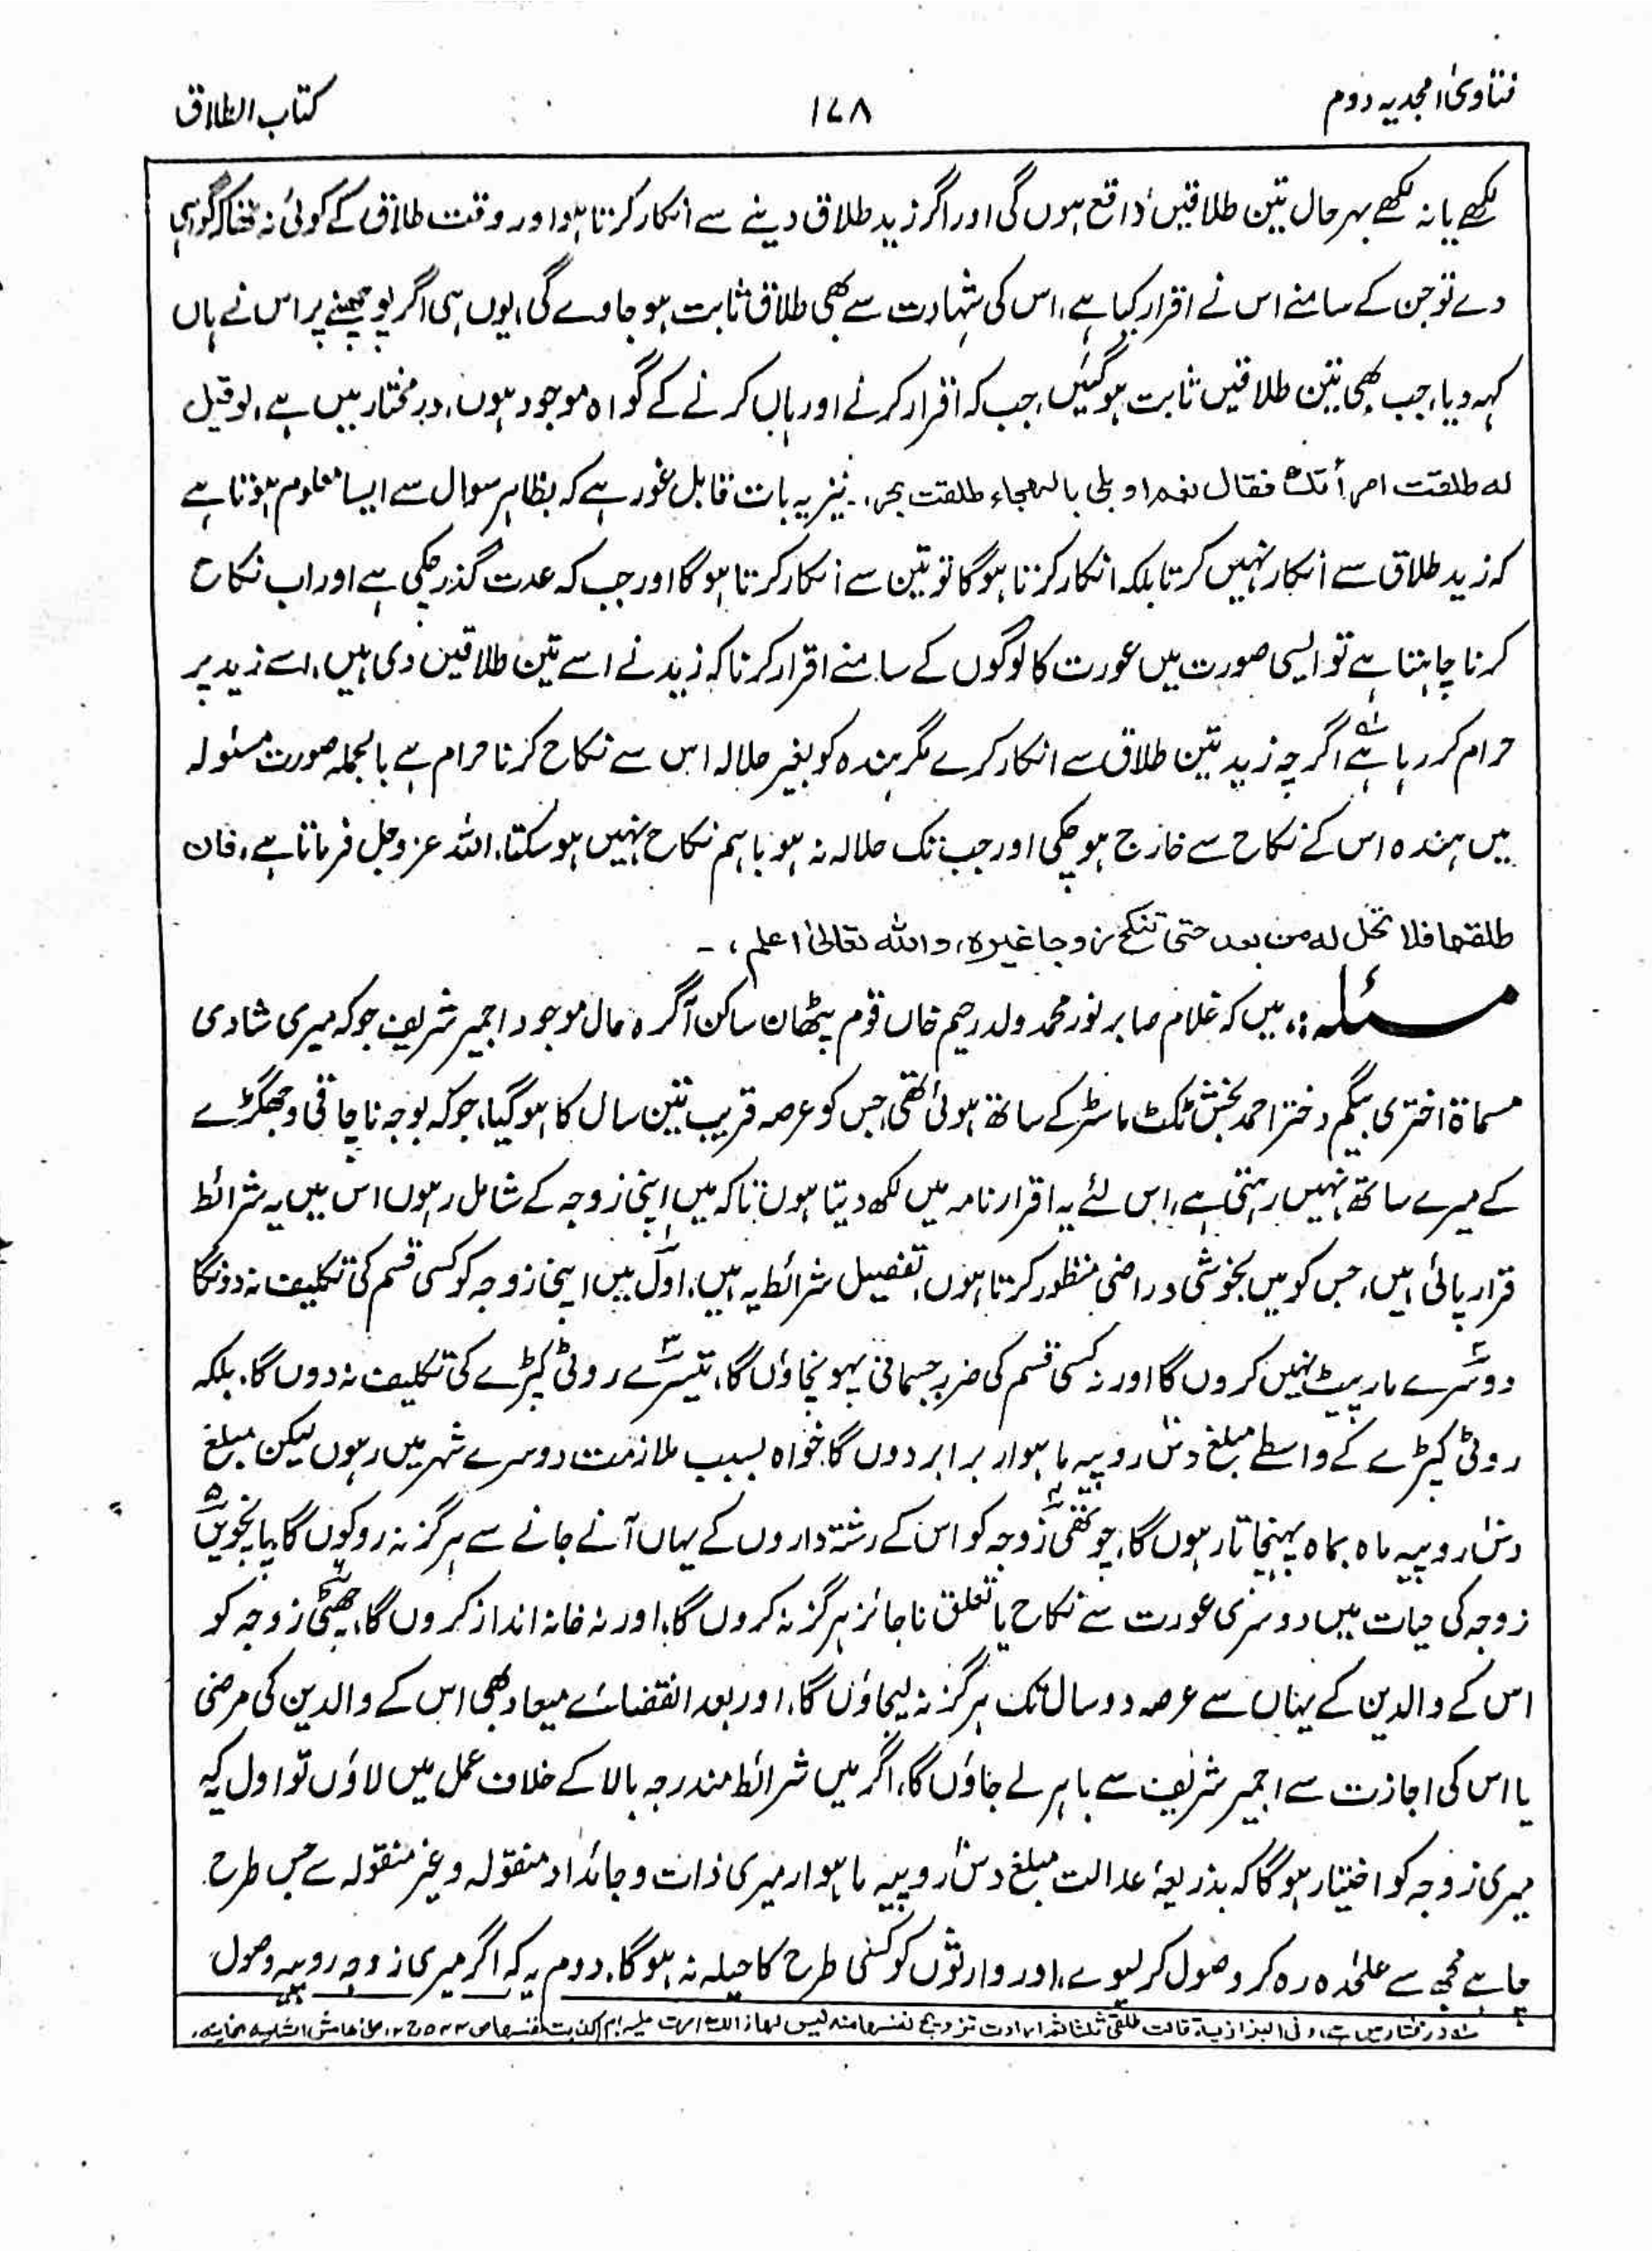 فتاویٰ امجدیہ دوم
۱۷۸
کتاب الطلاق
لکھے یا نہ لکھے بہر حال تین طلاقیں واقع ہوں گی اور اگر زید طلاق دینے سے انکار کرتا ہو اور وقت طلاق کے کوئی نہ تھا کہ گواہی
دے تو جن کے سامنے اس نے اقرار کیا ہے، اس کی شہادت سے بھی طلاق ثابت ہو جاوے گی، یوں ہی اگر پوچھنے پر اس نے ہاں
کہہ دیا، جب بھی تین طلاقیں ثابت ہو گئیں، جب کہ اقرار کرنے اور ہاں کرنے کے گواہ موجود ہوں، در مختار میں ہے، لو قیل
لہ طلقت امرأتک فقال نعم او بلی بالھجاء طلقت بحر،۔ نیز یہ بات قابل غور ہے کہ بظاہر سوال سے ایسا معلوم ہوتا ہے
کہ زید طلاق سے انکار نہیں کرتا بلکہ انکار کرتا ہوگا تو تین سے انکار کرتا ہوگا اور جب کہ عدت گذر چکی ہے اور اب نکاح
کرنا چاہتا ہے تو ایسی صورت میں عورت کا لوگوں کے سامنے اقرار کرنا کہ زید نے اسے تین طلاقیں دی ہیں، اسے زید پر
حرام کر رہا ہے ؎۱ اگر چہ زید تین طلاق سے انکار کرے مگر ہندہ کو بغیر حلالہ اس سے نکاح کرنا حرام ہے بالجملہ صورت مسئولہ
میں ہندہ اس کے نکاح سے خارج ہو چکی اور جب تک حلالہ نہ ہو باہم نکاح نہیں ہو سکتا، اللہ عز وجل فرماتا ہے، فان
طلقھا فلا تحل لہ من بعد حتی تنکح زوجا غیرہ، واللہ تعالیٰ اعلم،۔
مسئلہ:، میں کہ غلام صابر نور محمد ولد رحیم خاں قوم پٹھان ساکن آگرہ حال موجود اجمیر شریف جو کہ میری شادی
مسماۃ اختری بیگم دختر احمد بخش ٹکٹ ماسٹر کے ساتھ ہوئی تھی، جس کو عرصہ قریب تین سال کا ہو گیا، جو کہ بوجہ ناچاقی و جھگڑے
کے میرے ساتھ نہیں رہتی ہے، اس لئے یہ اقرار نامہ میں لکھ دیتا ہوں تاکہ میں اپنی زوجہ کے شامل رہوں اس میں یہ شرائط
قرار پائی ہیں، جس کو میں بخوشی و راضی منظور کرتا ہوں، تفصیل شرائط یہ ہیں، اول میں اپنی زوجہ کو کسی قسم کی تکلیف نہ دونگا
دوسرے مار پیٹ نہیں کروں گا اور نہ کسی قسم کی ضرب جسمانی پہونچاؤں گا، تیسرے روٹی کپڑے کی تکلیف نہ دوں گا، بلکہ
روٹی کپڑے کے واسطے مبلغ دس روپیہ ماہوار برابر دوں گا خواہ بسبب ملازمت دوسرے شہر میں رہوں لیکن مبلغ
دس روپیہ ماہ بماہ پہنچاتا رہوں گا، چوتھی زوجہ کو اس کے رشتہ داروں کے یہاں آنے جانے سے ہرگز نہ روکوں گا، پانچویں
زوجہ کی حیات میں دوسری عورت سے نکاح یا تعلق ناجائز ہرگز نہ کروں گا، اور نہ خانہ انداز کروں گا، چھٹی زوجہ کو
اس کے والدین کے یہاں سے عرصہ دو سال تک ہرگز نہ لیجاؤں گا، اور بعد انقضائے میعاد بھی اس کے والدین کی مرضی
یا اس کی اجازت سے اجمیر شریف سے باہر لے جاؤں گا، اگر میں شرائط مندرجہ بالا کے خلاف عمل میں لاؤں تو اول یہ
میری زوجہ کو اختیار ہوگا کہ بذریعۂ عدالت مبلغ دس روپیہ ماہوار میری ذات و جائداد منقولہ و غیر منقولہ سے جس طرح
چاہے مجھ سے علیحدہ رہ کر وصول کر لیوے، اور وارثوں کو کسی طرح کا حیلہ نہ ہوگا، دوم یہ کہ اگر میری زوجہ روپیہ وصول
؎۱ در مختار میں ہے، وفی البزازیۃ قالت طلقنی ثلثا ثم ارادت تزویج نفسھا منہ لیس لھا ذالک اصرت علیہ ام اکذبت نفسھا ص